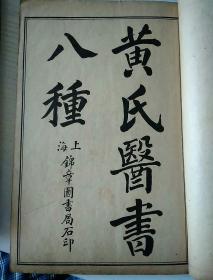 黄氏醫書
八種
上海
錦章圖書局石印